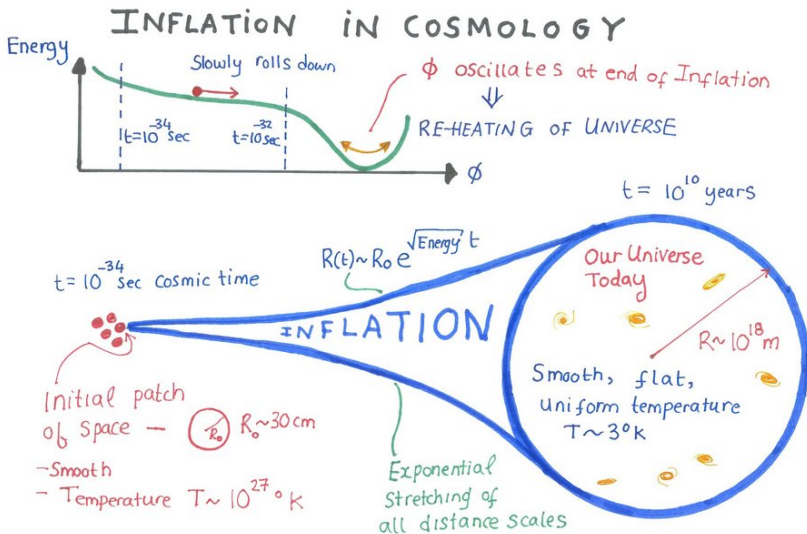 INFLATION IN COSMOLOGY
Energy
Slowly rolls down
t=10^-34 sec
t=10^-32 sec
ϕ
ϕ oscillates at end of Inflation
⇓
RE-HEATING OF UNIVERSE
t = 10^10 years
t = 10^-34 sec cosmic time
R(t)~R₀ e^√Energy t
INFLATION
Our Universe
Today
R~10^18 m
Smooth, flat,
uniform temperature
T~3°K
Initial patch
of space –
R₀
R₀~30cm
-Smooth
- Temperature T~10^27 °K
Exponential
Stretching of
all distance scales